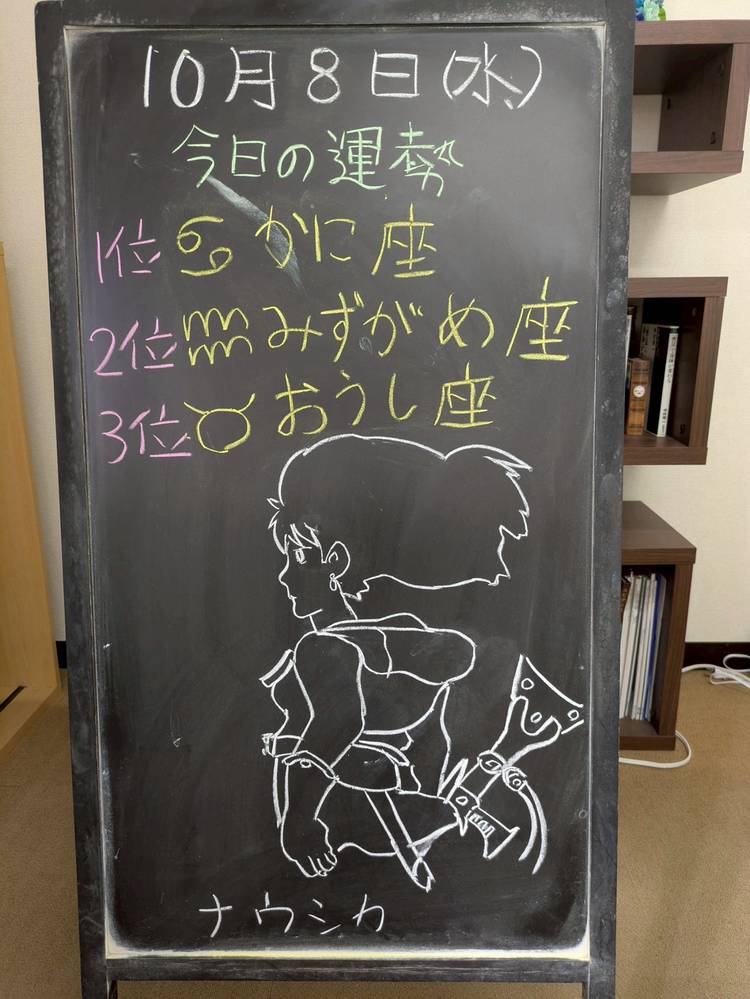 10月8日(水)
今日の運勢
1位♋かに座
2位♒みずがめ座
3位♉おうし座
ナウシカ